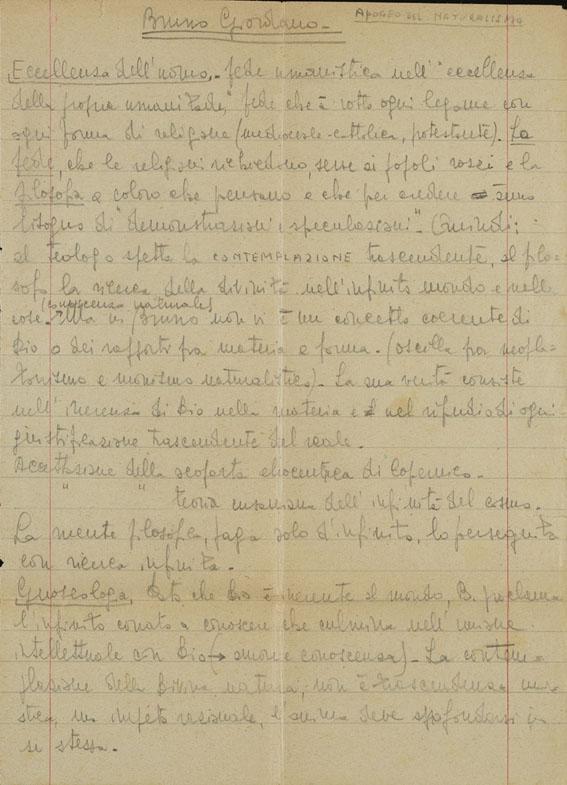 Bruno Giordano -
APOGEO DEL NATURALISMO
Eccellenza dell'uomo, - fede umanistica nell'"eccellenza
della propria umanitade," fede che à rotto ogni legame con
ogni forma di religione (medioevale-cattolica, protestante). La
fede, che le religioni richiedono, serve ai popoli rozzi e la
filosofia a coloro che pensano e che per credere ànno
bisogno di "demonstrazioni e speculazioni". Quindi:
al teologo spetta la CONTEMPLAZIONE trascendente, al filo-
sofo la ricerca della divinità nell'infinito mondo e nelle
(conoscenza naturale)
cose. Ma in Bruno non vi è un concetto coerente di
Dio o dei rapporti fra materia e forma. (oscilla fra neopla-
tonismo e monismo naturalistico). La sua verità consiste
nell'inerenza di Dio nella materia e nel rifiudio di ogni
giustificazione trascendente del reale.
Accettazione della scoperta eliocentrica di Copernico.
" " teoria cusaniana dell'infinità del cosmo.
La mente filosofica, paga solo d'infinito, lo perseguita
con ricerca infinita.
Gnoseologia, Dato che Dio è inerente al mondo, B. proclama
l'infinito conato a conoscere che culmina nell'unione
intellettuale con Dio (→ amore e conoscenza). La contem-
plazione della Divina natura, non è trascendenza mi-
stica, ma impeto razionale, l'anima deve approfondarsi in
se stessa.